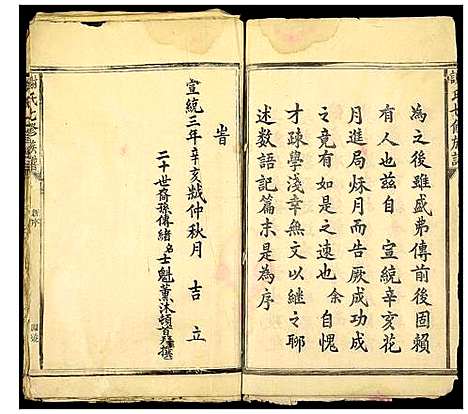 為之後雖盛弗傳前後固賴
有人也茲自 宣統辛亥花
月進局秌月而告厥成功成
之竟有如是之速也 余自愧
才疎學淺幸無文以繼之聊
述数語記篇末是為序
旹
宣統三年辛亥歲仲秋月 吉 立
二十世裔孫傳緒名士魁薰沐頓首拜撰
謝氏七修族譜